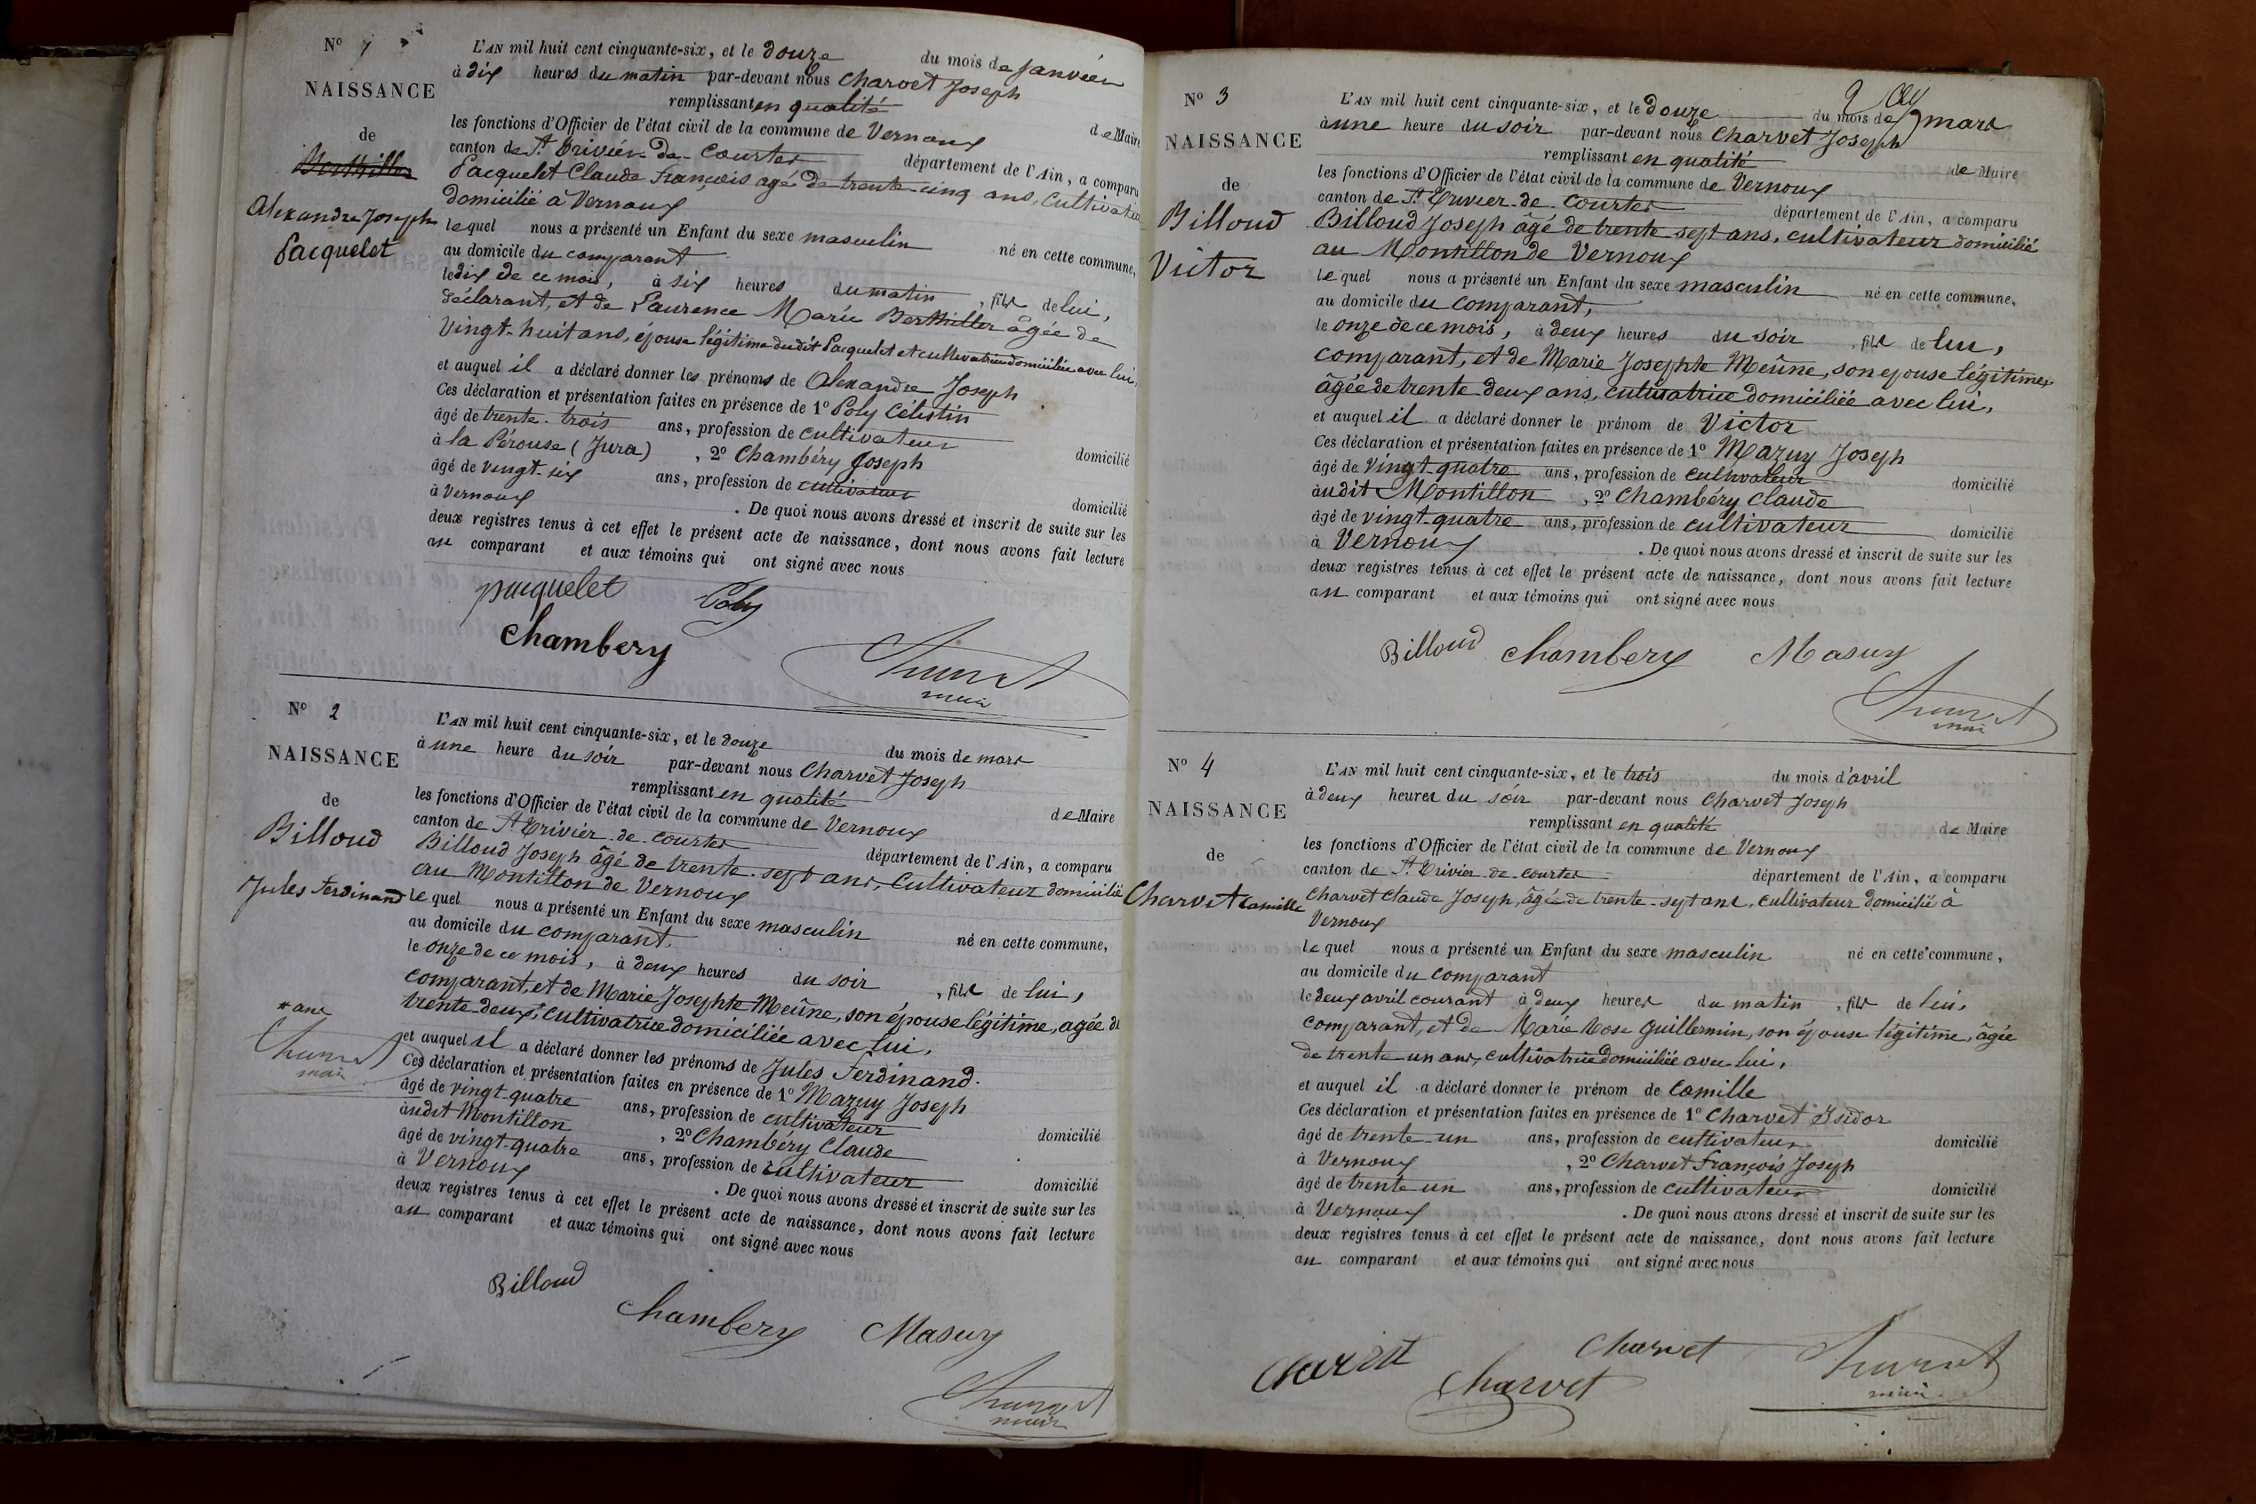 N° 1
NAISSANCE
de
Berthiller
Alexandre Joseph
Pacquelet
L'AN mil huit cent cinquante-six, et le douze du mois de janvier
à dix heures du matin par-devant nous Charvet Joseph
remplissant en qualité de Maire
les fonctions d'Officier de l'état civil de la commune de Vernoux
canton de St Trivier-de-Courtes département de l'Ain, a comparu
Pacquelet Claude François agé de trente-cinq ans, Cultivateur
domicilié à Vernoux
lequel nous a présenté un Enfant du sexe masculin né en cette commune,
au domicile du comparant
le dix de ce mois, à six heures du matin, fils de lui,
déclarant, et de Laurence Marie Berthiller âgée de
vingt-huit ans, épouse légitime dudit Pacquelet et cultivatrice domiciliée avec lui,
et auquel il a déclaré donner les prénoms de Alexandre Joseph
Ces déclaration et présentation faites en présence de 1° Poly Célestin
âgé de trente-trois ans, profession de cultivateur domicilié
à la Pérouse (Jura), 2° Chambéry Joseph
âgé de vingt-six ans, profession de cultivateur domicilié
à Vernoux. De quoi nous avons dressé et inscrit de suite sur les
deux registres tenus à cet effet le présent acte de naissance, dont nous avons fait lecture
au comparant et aux témoins qui ont signé avec nous
pacquelet Poly
Chambery
Charvet
maire
N° 2
NAISSANCE
de
Billoud
Jules Ferdinand
L'AN mil huit cent cinquante-six, et le douze du mois de mars
à une heure du soir par-devant nous Charvet Joseph
remplissant en qualité de Maire
les fonctions d'Officier de l'état civil de la commune de Vernoux
canton de St Trivier-de-Courtes département de l'Ain, a comparu
Billoud Joseph âgé de trente-sept ans, Cultivateur domicilié
au Montillon de Vernoux
lequel nous a présenté un Enfant du sexe masculin né en cette commune,
au domicile du comparant,
le onze de ce mois, à deux heures du soir, fils de lui,
comparant, et de Marie Josephte Meûne, son épouse légitime, agée de
trente-deux*, cultivatrice domiciliée avec lui,
*ans
Charvet
maire
et auquel il a déclaré donner les prénoms de Jules Ferdinand.
Ces déclaration et présentation faites en présence de 1° Mazuy Joseph
âgé de vingt-quatre ans, profession de cultivateur domicilié
audit Montillon, 2° Chambéry Claude
âgé de vingt-quatre ans, profession de cultivateur domicilié
à Vernoux. De quoi nous avons dressé et inscrit de suite sur les
deux registres tenus à cet effet le présent acte de naissance, dont nous avons fait lecture
au comparant et aux témoins qui ont signé avec nous
Billoud
Chambery Masuy
Charvet
maire
N° 3
NAISSANCE
de
Billoud
Victor
L'AN mil huit cent cinquante-six, et le douze du mois de mars
à une heure du soir par-devant nous Charvet Joseph
remplissant en qualité de Maire
les fonctions d'Officier de l'état civil de la commune de Vernoux
canton de St Trivier-de-Courtes département de l'Ain, a comparu
Billoud Joseph âgé de trente sept ans, cultivateur domicilié
au Montillon de Vernoux
lequel nous a présenté un Enfant du sexe masculin né en cette commune,
au domicile du comparant,
le onze de ce mois, à deux heures du soir, fils de lui,
comparant, et de Marie Josephte Meûne, son epouse légitime,
âgée de trente deux ans, cultivatrice domiciliée avec lui,
et auquel il a déclaré donner le prénom de Victor
Ces déclaration et présentation faites en présence de 1° Mazuy Joseph
âgé de vingt-quatre ans, profession de cultivateur domicilié
audit Montillon, 2° Chambéry Claude
âgé de vingt-quatre ans, profession de cultivateur domicilié
à Vernoux. De quoi nous avons dressé et inscrit de suite sur les
deux registres tenus à cet effet le présent acte de naissance, dont nous avons fait lecture
au comparant et aux témoins qui ont signé avec nous
Billoud Chambery Masuy
Charvet
maire
N° 4
NAISSANCE
de
Charvet Camille
L'AN mil huit cent cinquante-six, et le trois du mois d'avril
à deux heures du soir par-devant nous Charvet Joseph
remplissant en qualité de Maire
les fonctions d'Officier de l'état civil de la commune de Vernoux
canton de St Trivier-de-Courtes département de l'Ain, a comparu
Charvet Claude Joseph, âgé de trente-sept ans, cultivateur domicilié à
Vernoux
lequel nous a présenté un Enfant du sexe masculin né en cette commune,
au domicile du comparant
le deux avril courant à deux heures du matin, fils de lui,
comparant, et de Marie Rose Guillermin, son épouse légitime, âgée
de trente un ans, cultivatrice domiciliée avec lui,
et auquel il a déclaré donner le prénom de Camille
Ces déclaration et présentation faites en présence de 1° Charvet Isidor
âgé de trente-un ans, profession de cultivateur domicilié
à Vernoux, 2° Charvet François Joseph
âgé de trente-un ans, profession de cultivateur domicilié
à Vernoux. De quoi nous avons dressé et inscrit de suite sur les
deux registres tenus à cet effet le présent acte de naissance, dont nous avons fait lecture
au comparant et aux témoins qui ont signé avec nous
Charvet Charvet Charvet Charvet
maire